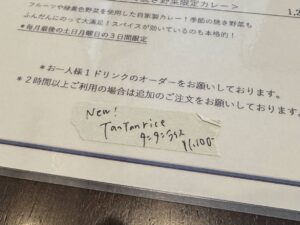 き野菜限定カレー＞
1,2
フルーツや緑黄色野菜を使用した自家製カレー！季節の焼き野菜も
ふんだんにのって大満足！スパイスが効いているのも本格的！
＊毎月最後の土日月曜日の３日間限定
＊お一人様１ドリンクのオーダーをお願いしております。
＊２時間以上ご利用の場合は追加のご注文をお願いしております。
New!
TanTanrice
タンタンライス
¥1,100-